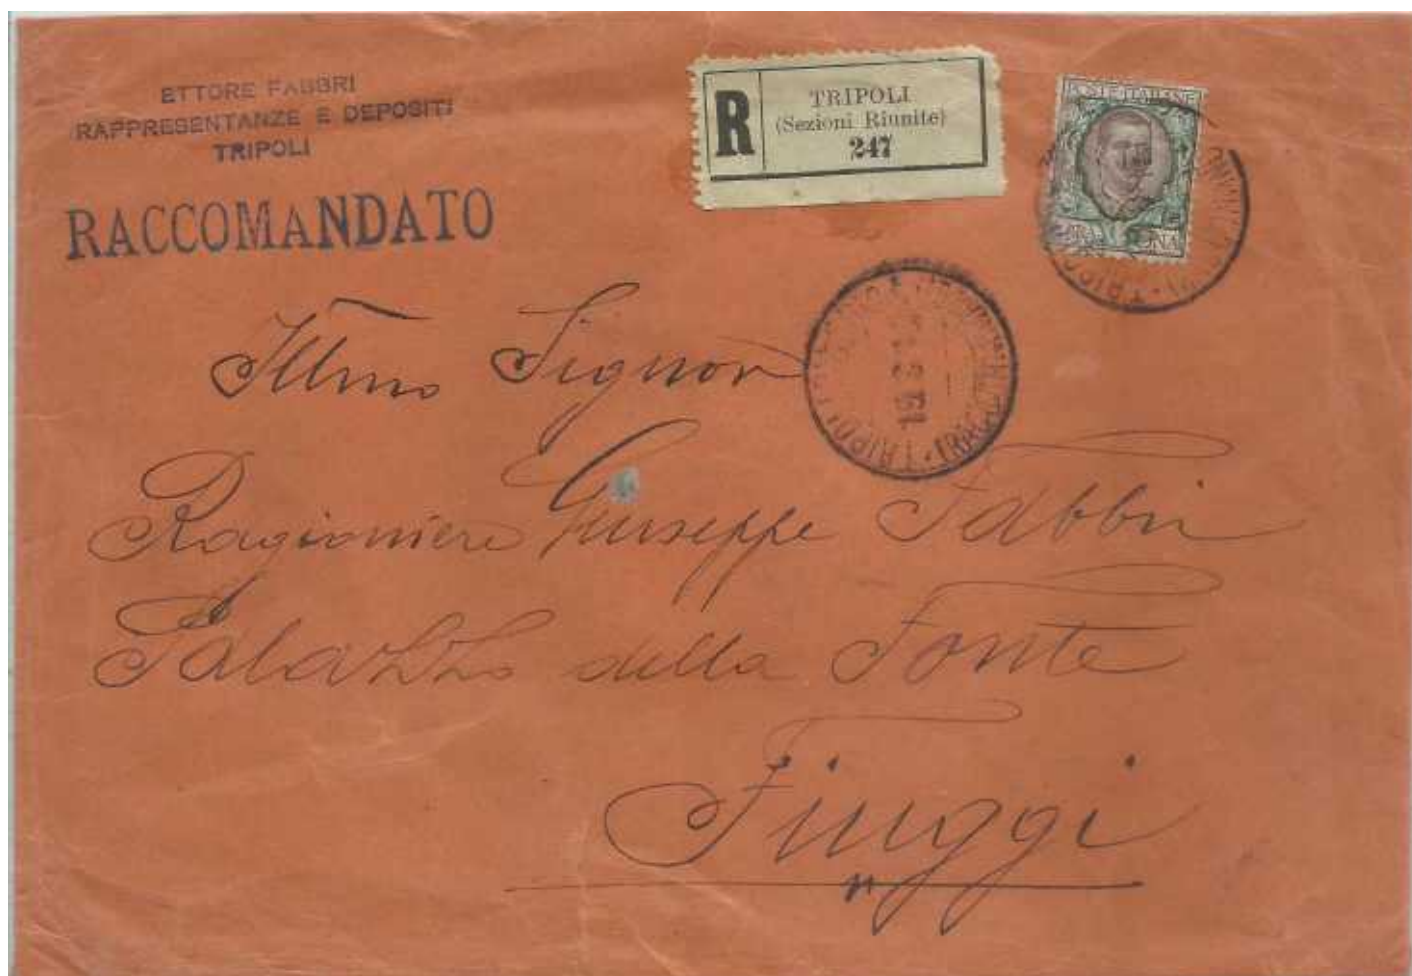 ETTORE FABBRI
RAPPRESENTANZE E DEPOSITI
TRIPOLI
RACCOMANDATO
R
TRIPOLI
(Sezioni Riunite)
247
POSTE ITALIANE
LIRA UNA
TRIPOLI
1921
Illmo Signor
Ragioniere Giuseppe Fabbri
Palazzo della Fonte
Fiuggi